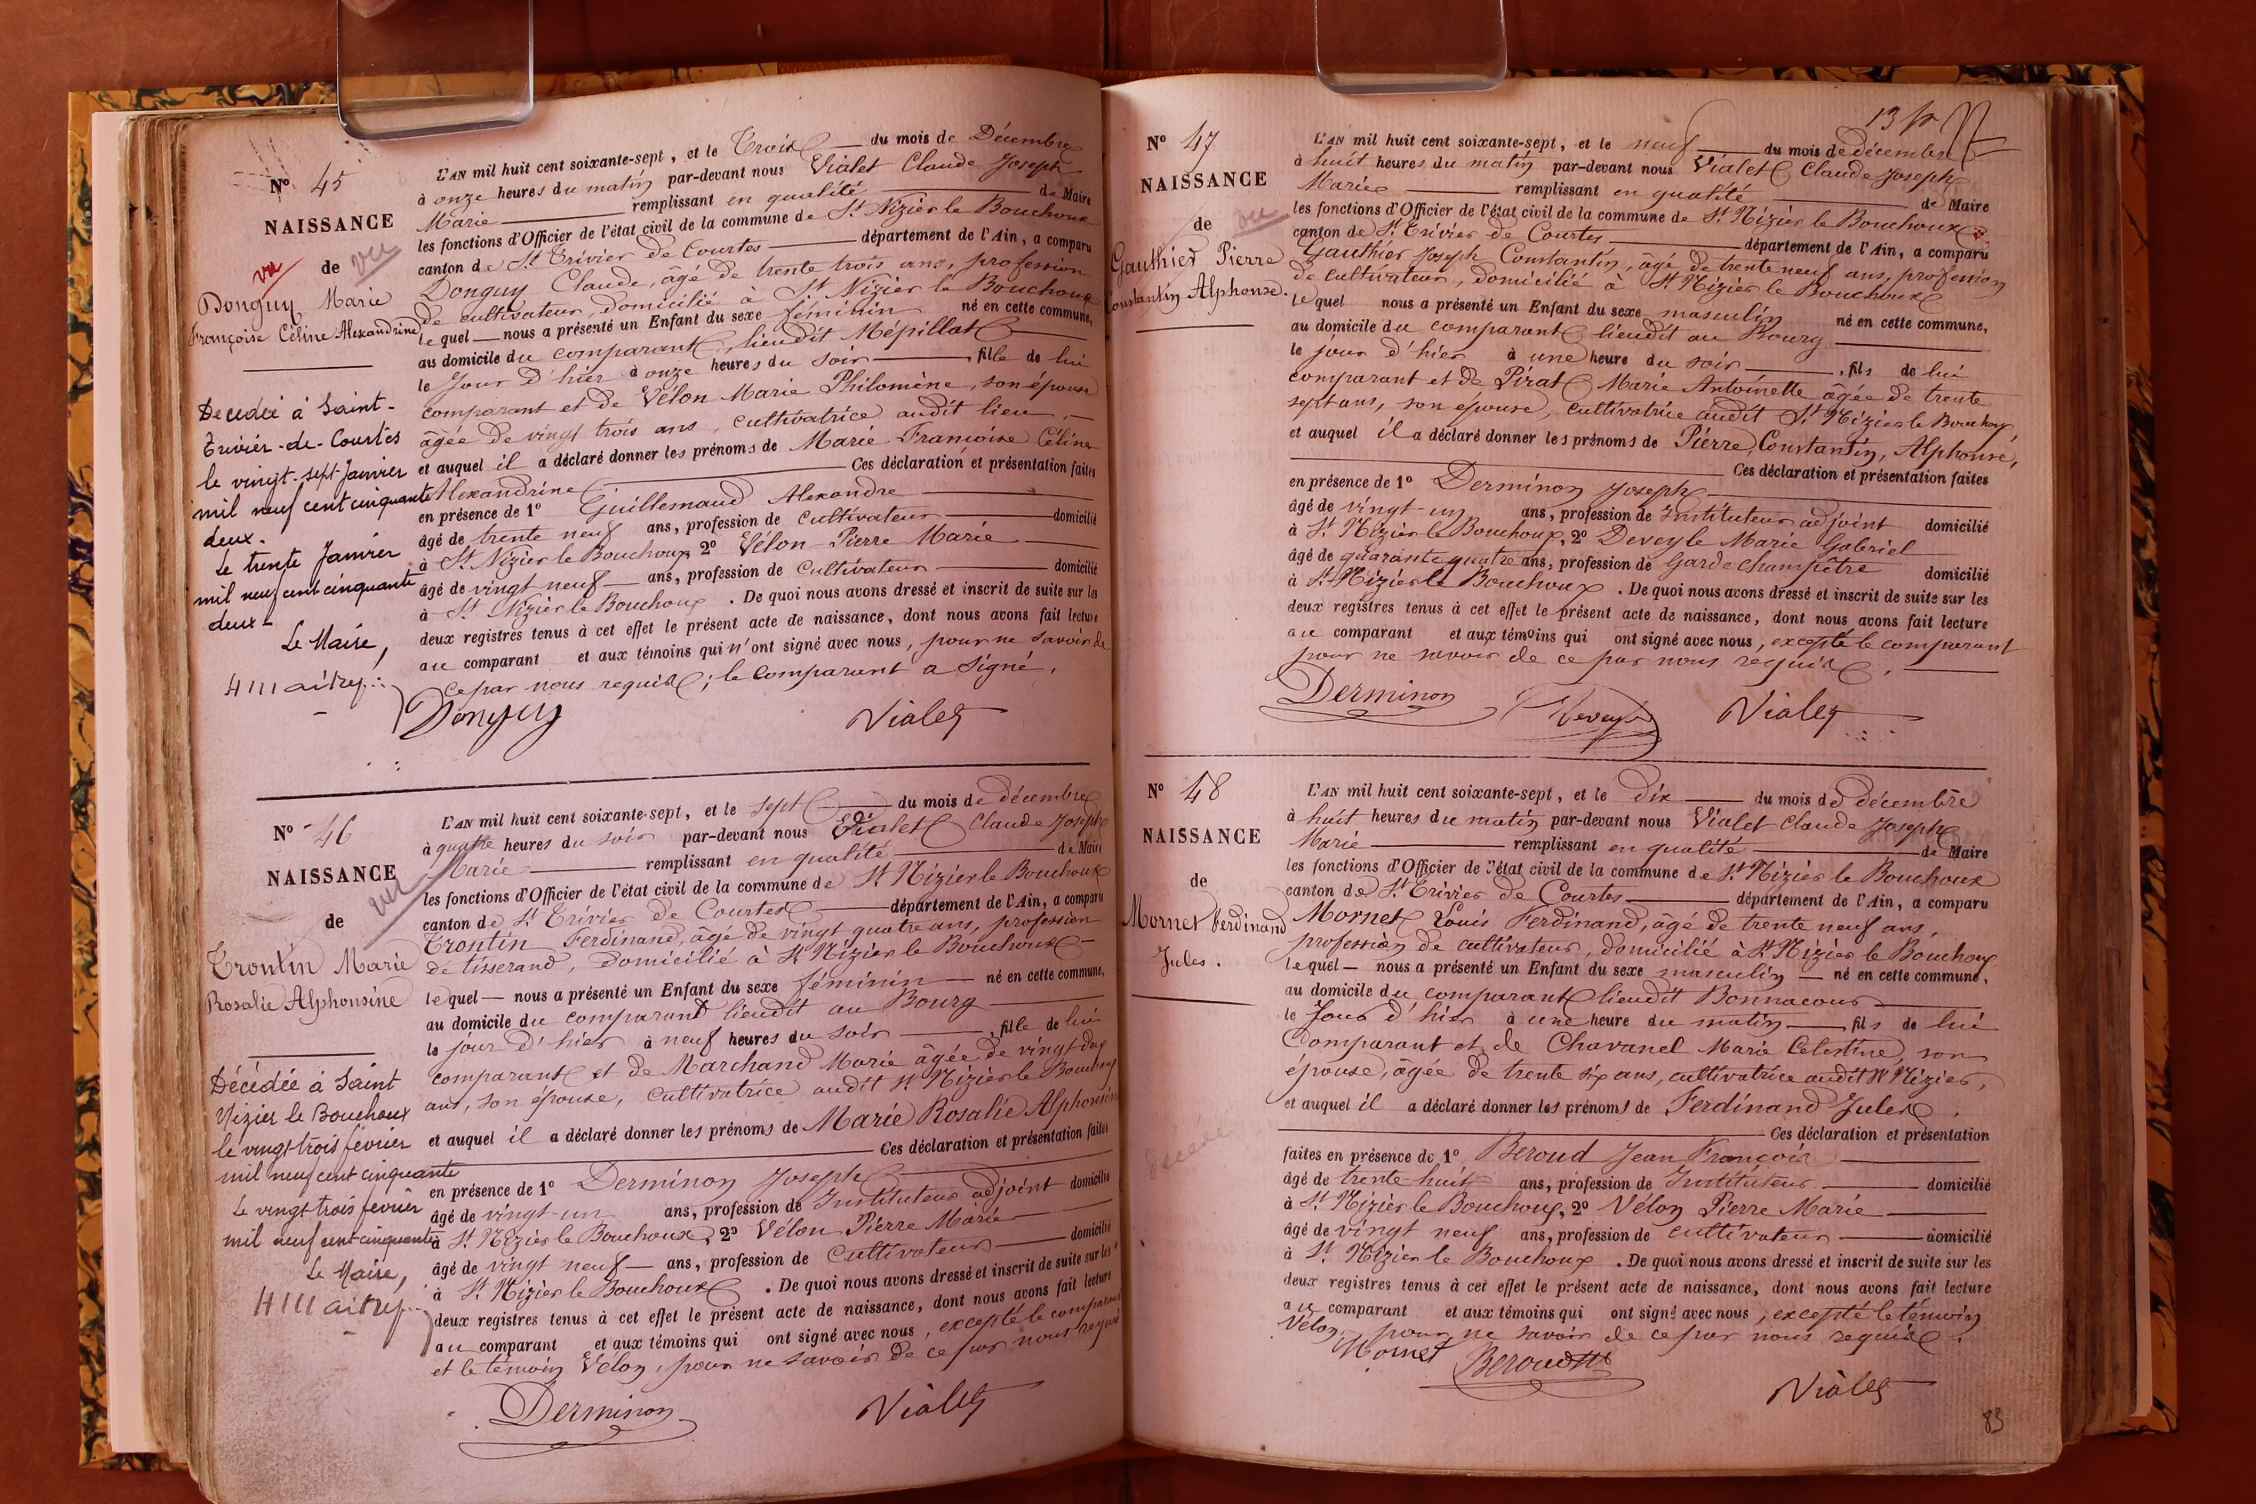 N° 45
NAISSANCE
de
vu
vu
Donguy Marie
Françoise Céline Alexandrine
Décédée à Saint-
Trivier-de-Courtes
le vingt-sept Janvier
mil neuf cent cinquante
deux.
Le trente Janvier
mil neuf cent cinquante
deux -
Le Maire,
L'AN mil huit cent soixante-sept, et le Trois du mois de Décembre
à onze heures du matin par-devant nous Vialet Claude Joseph
Marie remplissant en qualité de Maire
les fonctions d'Officier de l'état civil de la commune de St Nizier le Bouchoux
canton de St Trivier de Courtes département de l'Ain, a comparu
Donguy Claude, âgé de trente trois ans, profession
de cultivateur, domicilié à St Nizier le Bouchoux
lequel nous a présenté un Enfant du sexe féminin né en cette commune,
au domicile du comparant, lieudit Mépillat
le jour d'hier à onze heures du soir, fille de lui
comparant et de Vélon Marie Philomène, son épouse
âgée de vingt trois ans, cultivatrice audit lieu.
et auquel il a déclaré donner les prénoms de Marie Françoise Céline
Alexandrine Ces déclaration et présentation faites
en présence de 1° Guillemaud Alexandre
âgé de trente neuf ans, profession de cultivateur domicilié
à St Nizier le Bouchoux, 2° Vélon Pierre Marie
âgé de vingt neuf ans, profession de cultivateur domicilié
à St Nizier le Bouchoux. De quoi nous avons dressé et inscrit de suite sur les
deux registres tenus à cet effet le présent acte de naissance, dont nous avons fait lecture
au comparant et aux témoins qui n'ont signé avec nous, pour ne savoir de
ce par nous requis; le comparant a signé.
Donguy Vialet
N° 46
NAISSANCE
de
vu
Trontin Marie
Rosalie Alphonsine
Décédée à Saint
Nizier le Bouchoux
le vingt trois février
mil neuf cent cinquante
Le vingt trois février
mil neuf cent cinquante
Le Maire,
L'AN mil huit cent soixante-sept, et le sept du mois de décembre
à quatre heures du soir par-devant nous Vialet Claude Joseph
Marie remplissant en qualité de Maire
les fonctions d'Officier de l'état civil de la commune de St Nizier le Bouchoux
canton de St Trivier de Courtes département de l'Ain, a comparu
Trontin Ferdinand, âgé de vingt quatre ans, profession
de tisserand, domicilié à St Nizier le Bouchoux
lequel nous a présenté un Enfant du sexe féminin né en cette commune,
au domicile du comparant lieudit au Bourg
le jour d'hier à neuf heures du soir, fille de lui
comparant et de Marchand Marie âgée de vingt
ans, son épouse, cultivatrice audit St Nizier le Bouchoux
et auquel il a déclaré donner les prénoms de Marie Rosalie Alphonsine
Ces déclaration et présentation faites
en présence de 1° Derminon Joseph
âgé de vingt-un ans, profession de Instituteur adjoint domicilié
à St Nizier le Bouchoux, 2° Vélon Pierre Marie
âgé de vingt neuf ans, profession de cultivateur domicilié
à St Nizier le Bouchoux. De quoi nous avons dressé et inscrit de suite sur les
deux registres tenus à cet effet le présent acte de naissance, dont nous avons fait lecture
au comparant et aux témoins qui ont signé avec nous, excepté le comparant
et le témoin Vélon, pour ne savoir de ce par nous requis
Derminon Vialet
N° 47
NAISSANCE
de
vu
Gauthier Pierre
Constantin Alphonse.
L'AN mil huit cent soixante-sept, et le neuf du mois de décembre
à huit heures du matin par-devant nous Vialet Claude Joseph
Marie remplissant en qualité de Maire
les fonctions d'Officier de l'état civil de la commune de St Nizier le Bouchoux
canton de St Trivier de Courtes département de l'Ain, a comparu
Gauthier Joseph Constantin, âgé de trente neuf ans, profession
de cultivateur, domicilié à St Nizier le Bouchoux
lequel nous a présenté un Enfant du sexe masculin né en cette commune,
au domicile du comparant lieudit au Bourg
le jour d'hier à une heure du soir, fils de lui
comparant et de Pirat Marie Antoinette âgée de trente
sept ans, son épouse, cultivatrice audit St Nizier le Bouchoux
et auquel il a déclaré donner les prénoms de Pierre, Constantin, Alphonse,
Ces déclaration et présentation faites
en présence de 1° Derminon Joseph
âgé de vingt-un ans, profession de Instituteur adjoint domicilié
à St Nizier le Bouchoux, 2° Deveyle Marie Gabriel
âgé de quarante quatre ans, profession de Garde champêtre domicilié
à St Nizier le Bouchoux. De quoi nous avons dressé et inscrit de suite sur les
deux registres tenus à cet effet le présent acte de naissance, dont nous avons fait lecture
au comparant et aux témoins qui ont signé avec nous, excepté le comparant
pour ne savoir de ce par nous requis.
Derminon Deveyle Vialet
N° 48
NAISSANCE
de
Mornet Ferdinand
Jules.
décédé
L'AN mil huit cent soixante-sept, et le dix du mois de décembre
à huit heures du matin par-devant nous Vialet Claude Joseph
Marie remplissant en qualité de Maire
les fonctions d'Officier de l'état civil de la commune de St Nizier le Bouchoux
canton de St Trivier de Courtes département de l'Ain, a comparu
Mornet Louis Ferdinand, âgé de trente neuf ans,
profession de cultivateur, domicilié à St Nizier le Bouchoux
lequel nous a présenté un Enfant du sexe masculin né en cette commune,
au domicile du comparant lieudit Bonnacour
le Jour d'hier à une heure du matin fils de lui
Comparant et de Chavanel Marie Celestine, son
épouse, âgée de trente six ans, cultivatrice audit St Nizier,
et auquel il a déclaré donner les prénoms de Ferdinand Jules.
Ces déclaration et présentation
faites en présence de 1° Beroud Jean François
âgé de trente huit ans, profession de Instituteur domicilié
à St Nizier le Bouchoux, 2° Vélon Pierre Marie
âgé de vingt neuf ans, profession de cultivateur domicilié
à St Nizier le Bouchoux. De quoi nous avons dressé et inscrit de suite sur les
deux registres tenus à cet effet le présent acte de naissance, dont nous avons fait lecture
au comparant et aux témoins qui ont signé avec nous, excepté le témoin
Vélon, pour ne savoir de ce par nous requis.
Mornet Beroud Vialet
83